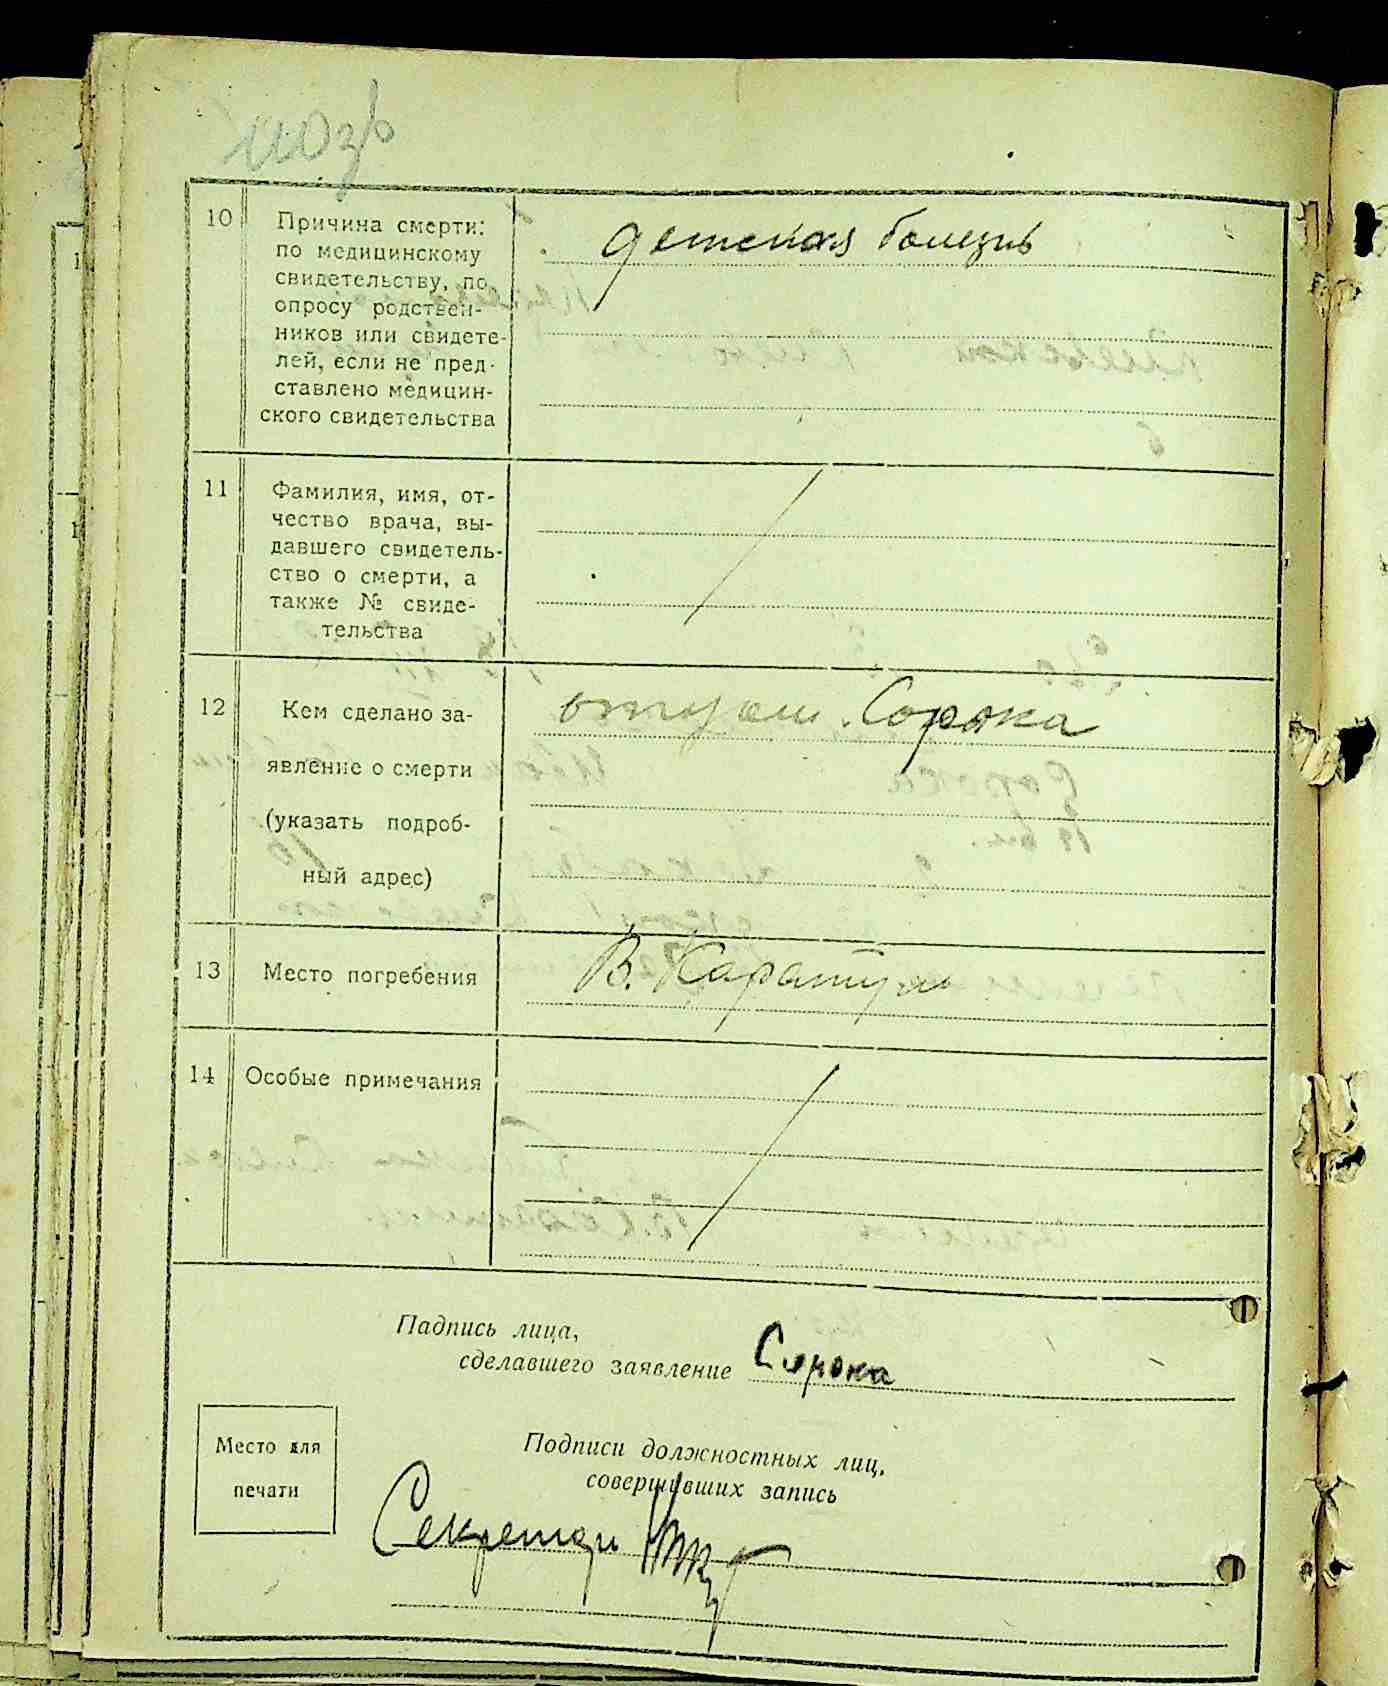 10
Причина смерти:
по медицинскому
свидетельству, по
опросу родствен-
ников или свидете-
лей, если не пред-
ставлено медицин-
ского свидетельства
детская болезнь
11
Фамилия, имя, от-
чество врача, вы-
давшего свидетель-
ство о смерти, а
также № свиде-
тельства
12
Кем сделано за-
явление о смерти
(указать подроб-
ный адрес)
отцом Сорока
13
Место погребения
В. Каратуль
14
Особые примечания
Падпись лица,
сделавшего заявление Сорока
Место для
печати
Подписи должностных лиц,
совершивших запись
Секретарь